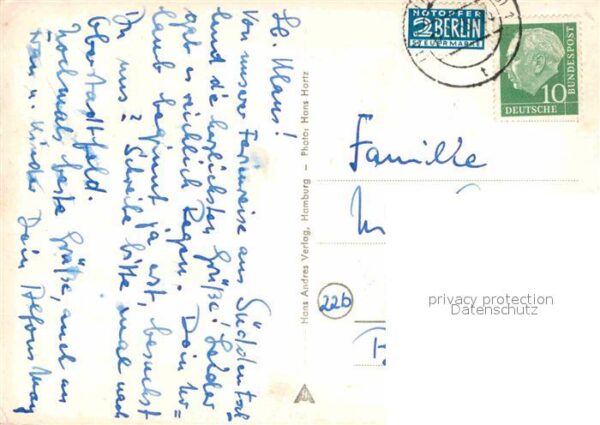 Lb. Klaus!
Von unserer Ferienreise aus Süddeutsch-
land die herzlichsten Grüße! Leider
gibt es reichlich Regen. Dein Ur=
laub beginnt ja erst, besuchst
Du uns? Schreibe bitte mal nach
Oberstadtfeld.
Nochmals beste Grüße, auch an
Frau u. Kinder Dein Alfons May
Hans Andres Verlag, Hamburg — Photo: Hans Hartz
NOTOPFER
2 BERLIN
STEUERMARKE
10
DEUTSCHE
BUNDESPOST
Familie
22b
privacy protection
Datenschutz